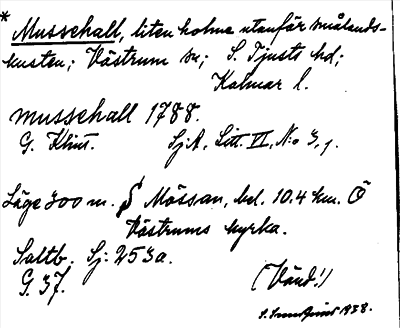 * Mussehall, liten holme utanför Smålands-
kusten; Västrum sn; S. Tjusts hd;
Kalmar l.
musshall 1788.
G. Klint. SjA, Litt. VI, No 3,1.
Läge 300 m. S Mössan, bel. 10.4 km. Ö
Västrums kyrka.
Saltb. Sj: 253a.
G. 37.
(Vänd!)
1938.